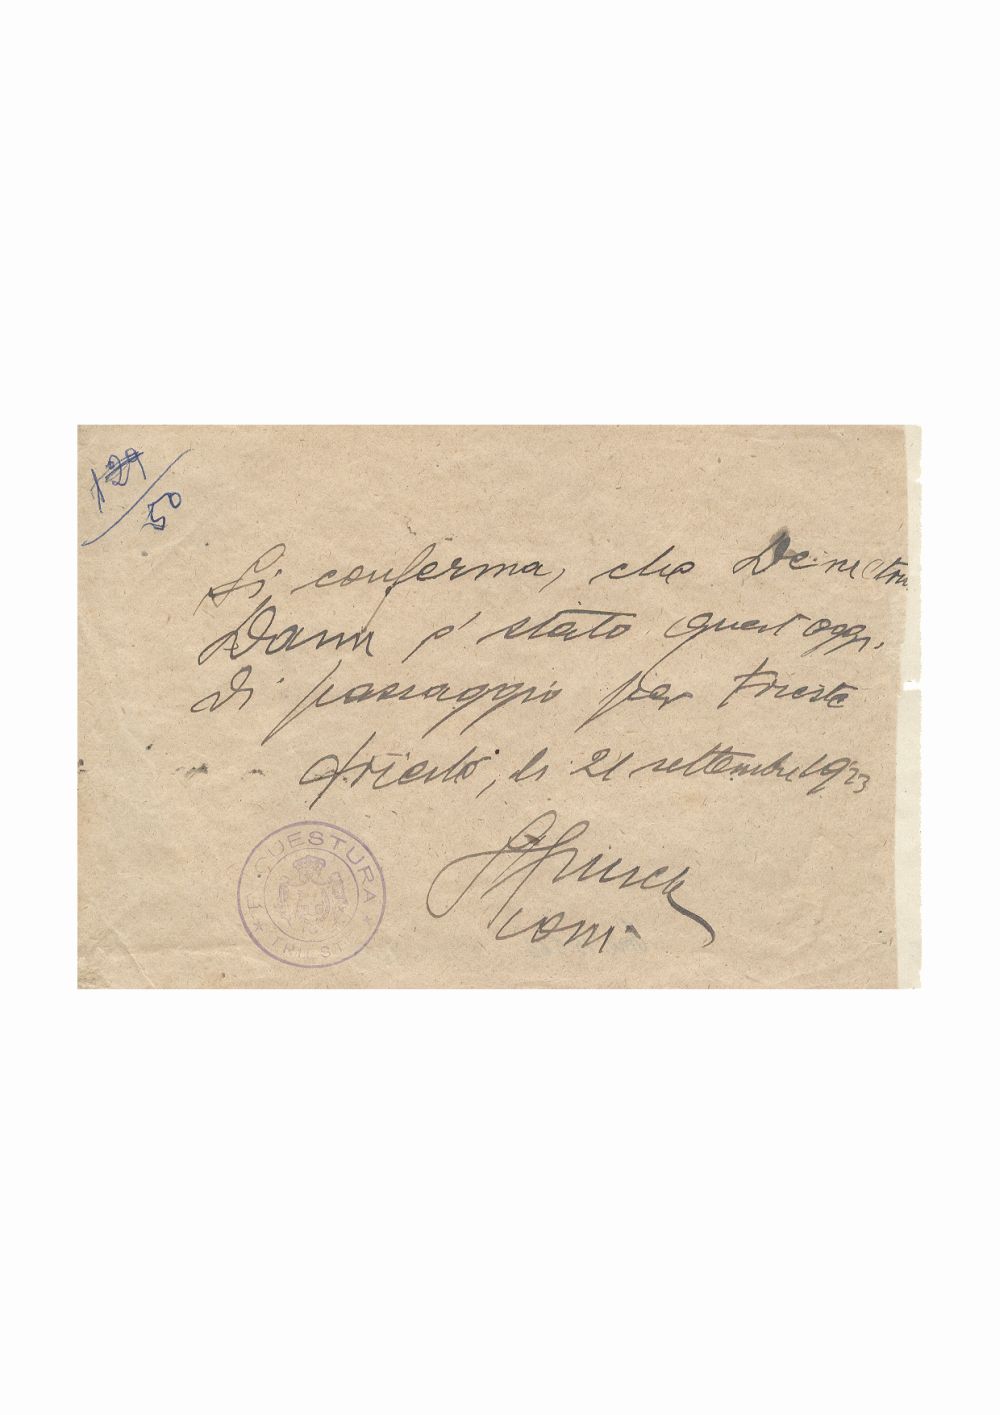 129
50
Si conferma, che Demetrio
Dami è stato quest'oggi
di passaggio per Trieste
Trieste, li 21 settembre 1923
Com.
R. QUESTURA
TRIEST